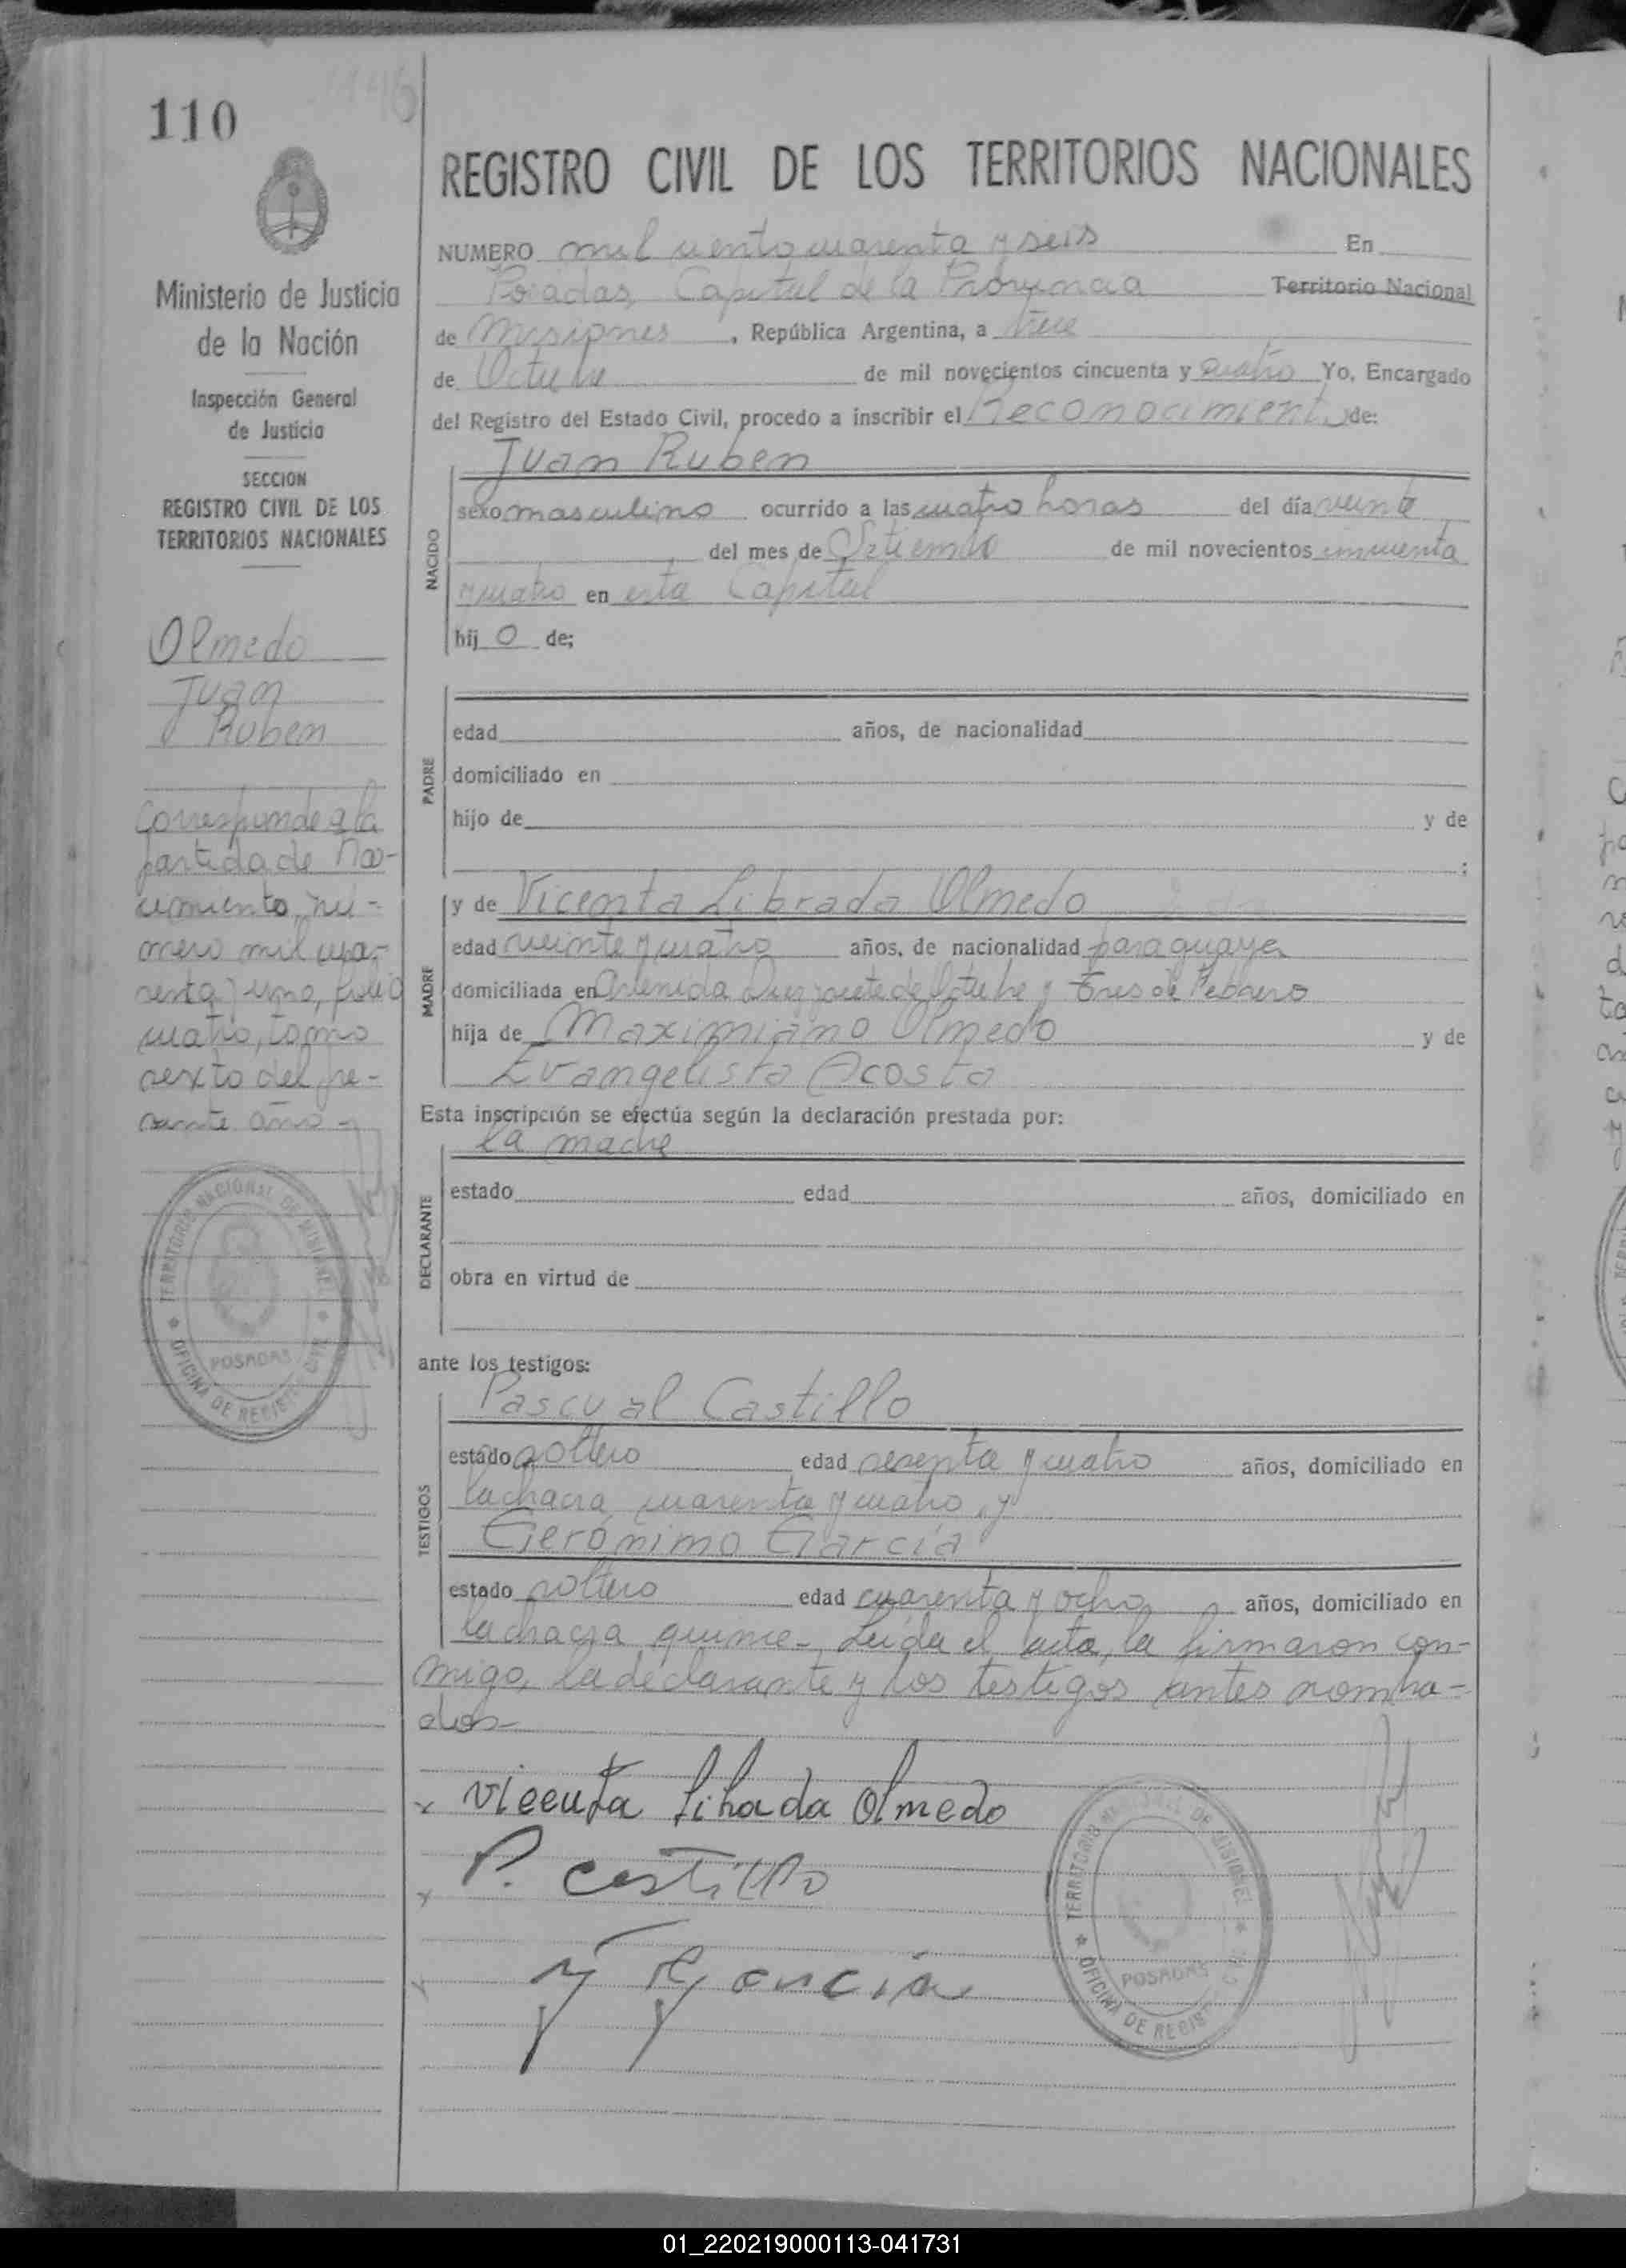 110
1146
REGISTRO CIVIL DE LOS TERRITORIOS NACIONALES
Ministerio de Justicia
de la Nación
Inspección General
de Justicia
SECCION
REGISTRO CIVIL DE LOS
TERRITORIOS NACIONALES
Olmedo
Juan
Ruben
Corresponde a la
partida de Na-
cimiento, nú-
mero mil cua-
renta y uno, folio
cuatro, tomo
sexto del pre-
sente año -
TERRITORIO NACIONAL DE MISIONES
POSADAS
OFICINA DE REGISTRO CIVIL
NUMERO mil ciento cuarenta y seis En
Posadas, Capital de la Provincia Territorio Nacional
de Misiones, República Argentina, a trece
de Octubre de mil novecientos cincuenta y cuatro Yo, Encargado
del Registro del Estado Civil, procedo a inscribir el Reconocimiento de:
Juan Ruben
NACIDO
sexo masculino ocurrido a las cuatro horas del día veinte
del mes de Setiembre de mil novecientos cincuenta
y cuatro en esta Capital
hij o de;
PADRE
edad años, de nacionalidad
domiciliado en
hijo de y de
;
MADRE
y de Vicenta Librada Olmedo
edad veinte y cuatro años, de nacionalidad paraguaya
domiciliada en Avenida Diez y siete de Octubre y Tres de Febrero
hija de Maximiano Olmedo y de
Evangelista Acosta
Esta inscripción se efectúa según la declaración prestada por:
la madre
DECLARANTE
estado edad años, domiciliado en
obra en virtud de
ante los testigos:
TESTIGOS
Pascual Castillo
estado soltero edad sesenta y cuatro años, domiciliado en
la chacra cuarenta y cuatro, y
Gerónimo García
estado soltero edad cuarenta y ocho años, domiciliado en
la chacra quince - Leída el acta, la firmaron con-
migo, la declarante y los testigos antes nombra-
dos -
x Vicenta Librada Olmedo
x P. Castillo
TERRITORIO NACIONAL DE MISIONES
POSADAS
OFICINA DE REGISTRO CIVIL
01_220219000113-041731